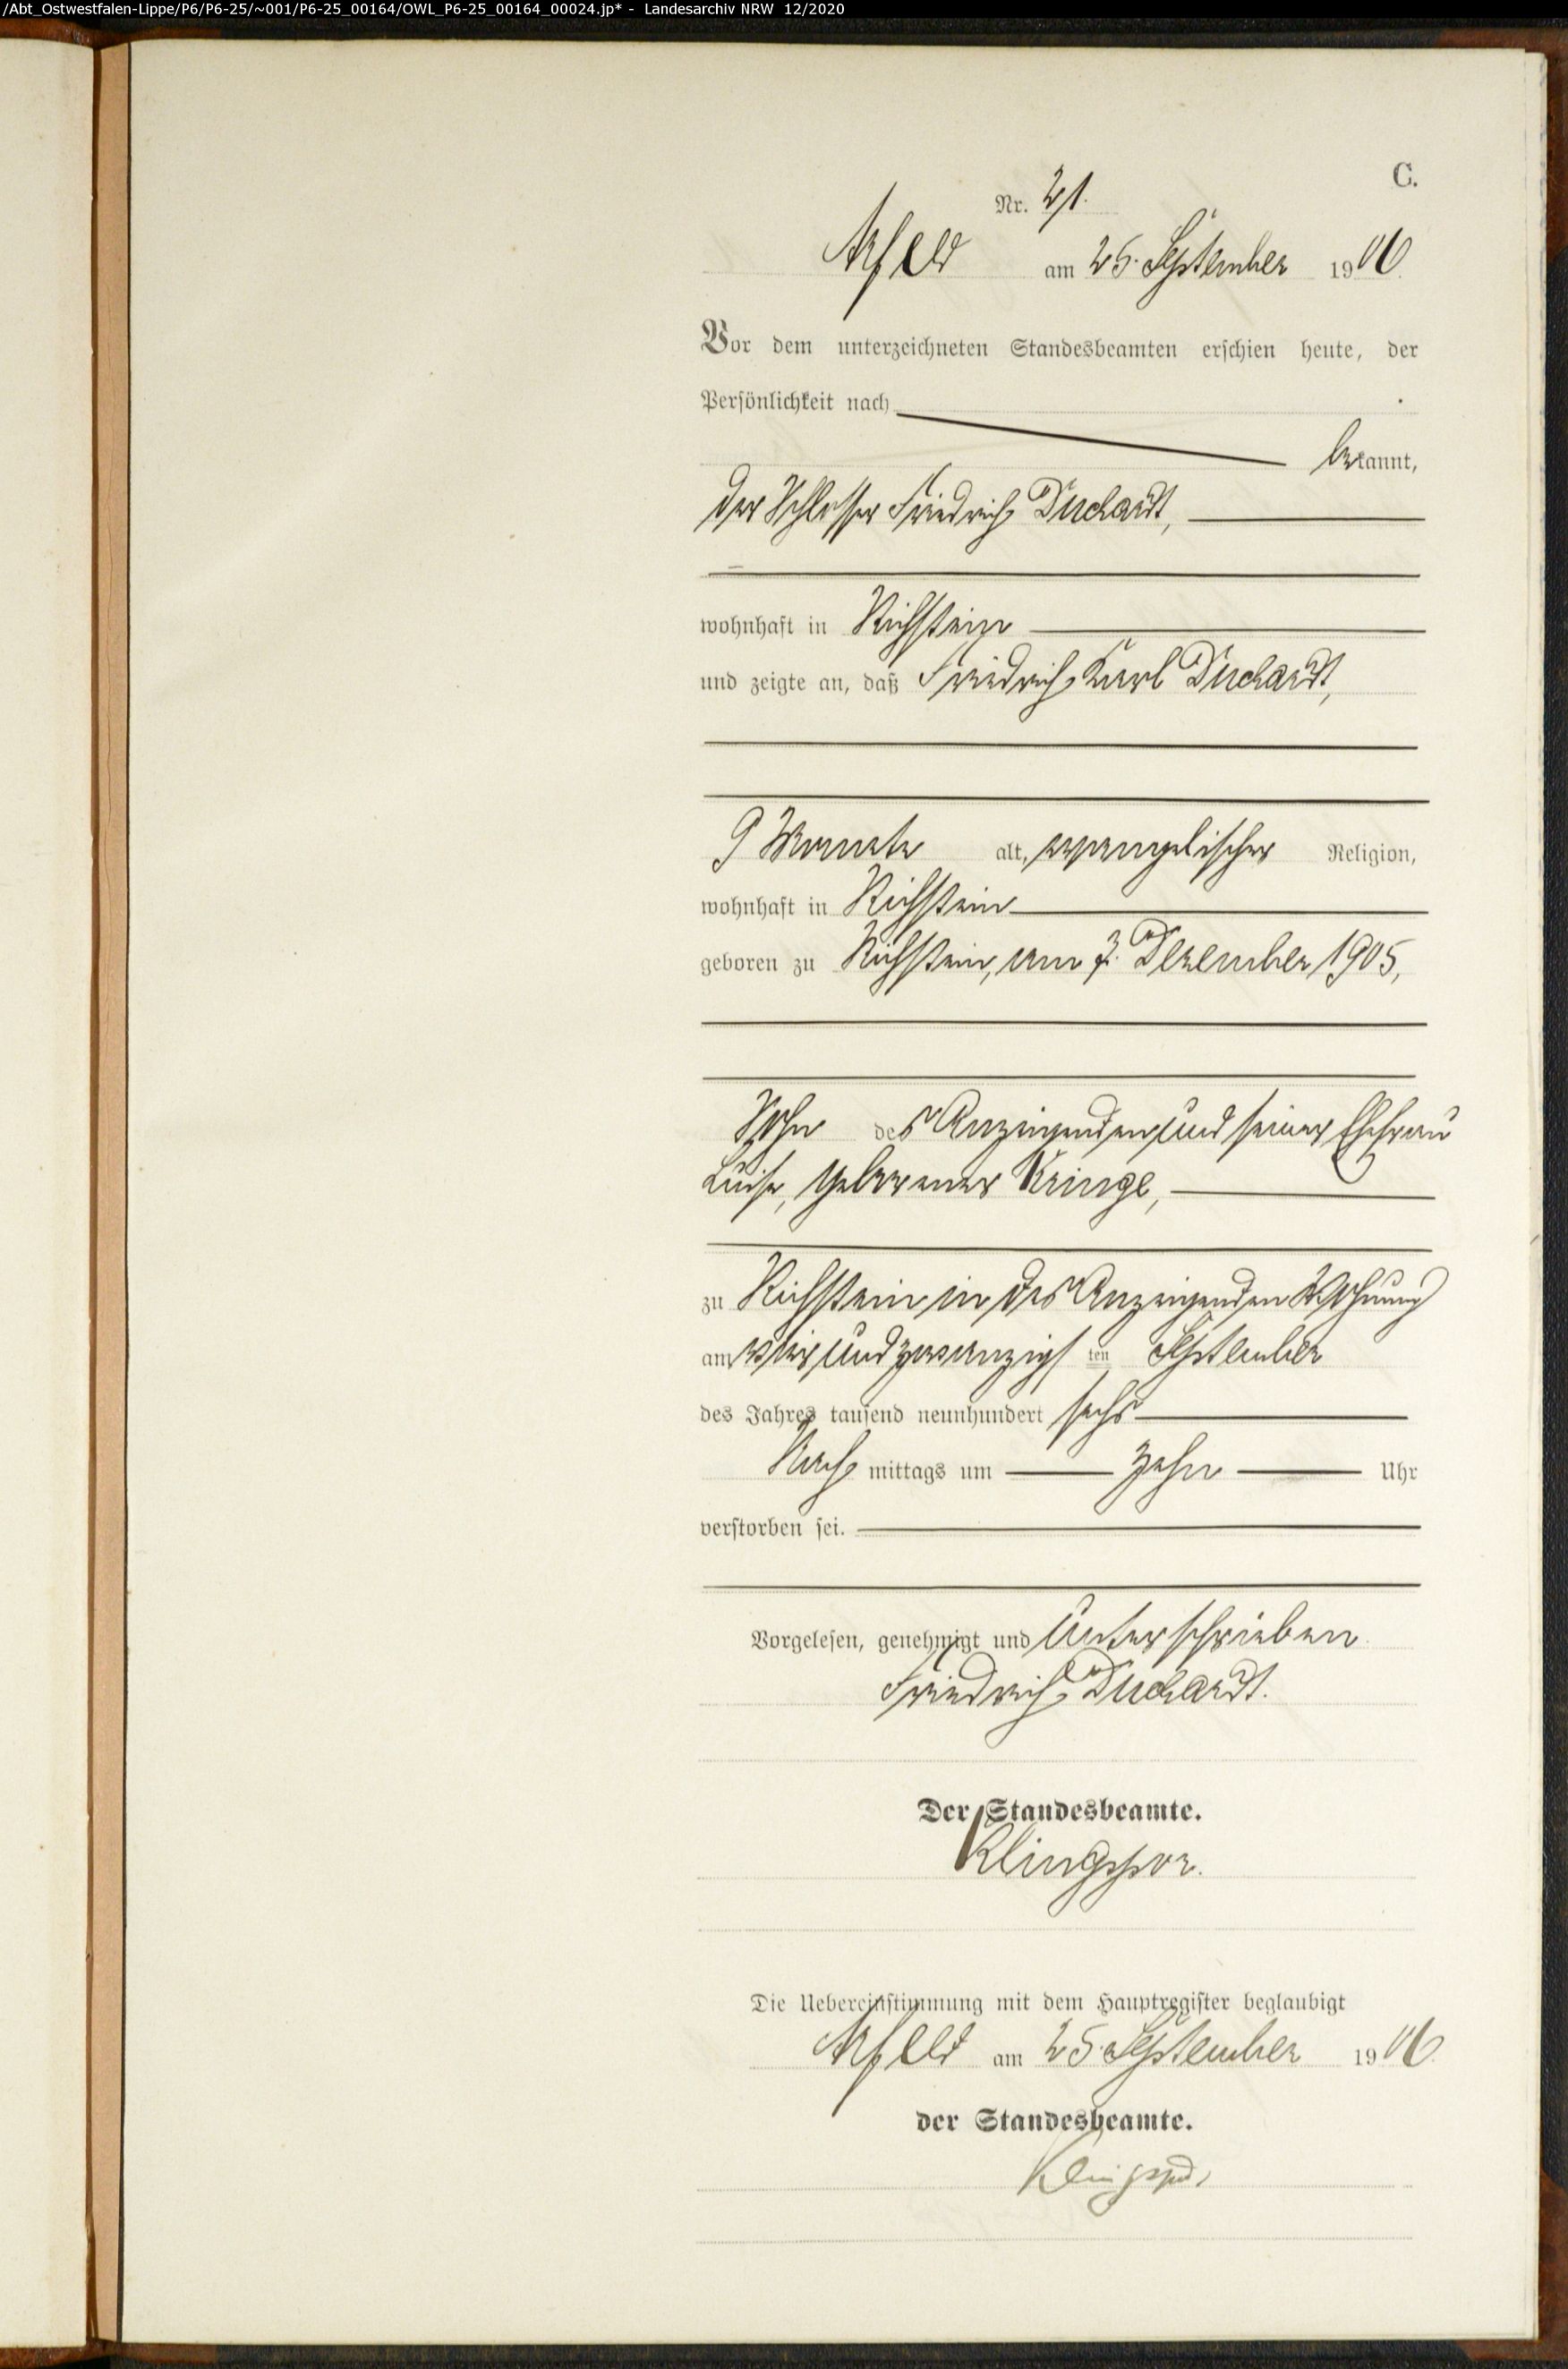 /Abt_Ostwestfalen-Lippe/P6/P6-25/~001/P6-25_00164/OWL_P6-25_00164_00024.jp* - Landesarchiv NRW 12/2020
C.
Nr. 21.
Arfeld am 25. September 1906.
Vor dem unterzeichneten Standesbeamten erschien heute, der
Persönlichkeit nach
bekannt,
der Schlosser Friedrich Duchardt,
wohnhaft in Richstein
und zeigte an, daß Friedrich Karl Duchardt,
9 Monate alt, evangelischer Religion,
wohnhaft in Richstein
geboren zu Richstein, am Dezember 1905,
Sohn des Anzeigenden und seiner Ehefrau
Luise, geborener Kringe,
zu Richstein in des Anzeigenden Wohnung
am vierundzwanzigsten September
des Jahres tausend neunhundert sechs
Nachmittags um zehn Uhr
verstorben sei.
Vorgelesen, genehmigt und unterschrieben.
Friedrich Duchardt.
Der Standesbeamte.
Klingspor.
Die Uebereinstimmung mit dem Hauptregister beglaubigt
Arfeld am 25. September 1906.
der Standesbeamte.
Klingspor